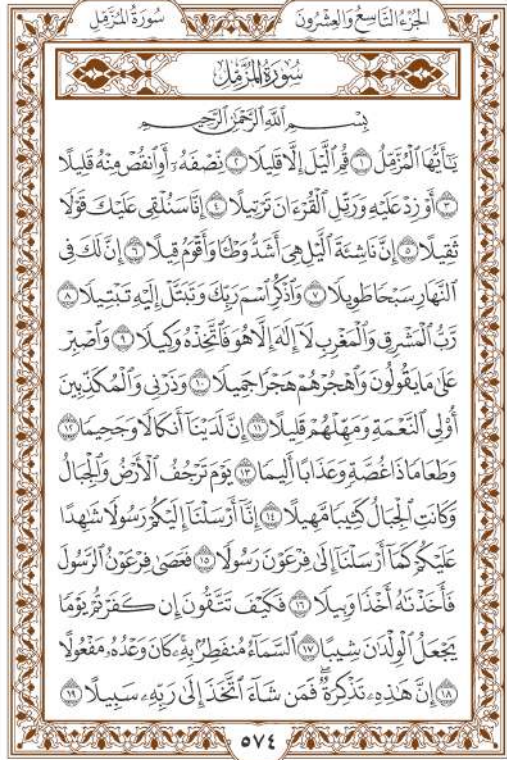 الجُزْءُ التَّاسِعُ وَالعِشْرُونَ سُورَةُ المُزَّمِّل
سُورَةُ المُزَّمِّل
بِسْمِ ٱللَّهِ ٱلرَّحْمَٰنِ ٱلرَّحِيمِ
يَٰٓأَيُّهَا ٱلْمُزَّمِّلُ ١ قُمِ ٱلَّيْلَ إِلَّا قَلِيلًا ٢ نِّصْفَهُۥٓ أَوِ ٱنقُصْ مِنْهُ قَلِيلًا
٣ أَوْ زِدْ عَلَيْهِ وَرَتِّلِ ٱلْقُرْءَانَ تَرْتِيلًا ٤ إِنَّا سَنُلْقِى عَلَيْكَ قَوْلًا
ثَقِيلًا ٥ إِنَّ نَاشِئَةَ ٱلَّيْلِ هِىَ أَشَدُّ وَطْـًٔا وَأَقْوَمُ قِيلًا ٦ إِنَّ لَكَ فِى
ٱلنَّهَارِ سَبْحًا طَوِيلًا ٧ وَٱذْكُرِ ٱسْمَ رَبِّكَ وَتَبَتَّلْ إِلَيْهِ تَبْتِيلًا ٨
رَّبُّ ٱلْمَشْرِقِ وَٱلْمَغْرِبِ لَآ إِلَٰهَ إِلَّا هُوَ فَٱتَّخِذْهُ وَكِيلًا ٩ وَٱصْبِرْ
عَلَىٰ مَا يَقُولُونَ وَٱهْجُرْهُمْ هَجْرًا جَمِيلًا ١٠ وَذَرْنِى وَٱلْمُكَذِّبِينَ
أُو۟لِى ٱلنَّعْمَةِ وَمَهِّلْهُمْ قَلِيلًا ١١ إِنَّ لَدَيْنَآ أَنكَالًا وَجَحِيمًا ١٢
وَطَعَامًا ذَا غُصَّةٍ وَعَذَابًا أَلِيمًا ١٣ يَوْمَ تَرْجُفُ ٱلْأَرْضُ وَٱلْجِبَالُ
وَكَانَتِ ٱلْجِبَالُ كَثِيبًا مَّهِيلًا ١٤ إِنَّآ أَرْسَلْنَآ إِلَيْكُمْ رَسُولًا شَٰهِدًا
عَلَيْكُمْ كَمَآ أَرْسَلْنَآ إِلَىٰ فِرْعَوْنَ رَسُولًا ١٥ فَعَصَىٰ فِرْعَوْنُ ٱلرَّسُولَ
فَأَخَذْنَٰهُ أَخْذًا وَبِيلًا ١٦ فَكَيْفَ تَتَّقُونَ إِن كَفَرْتُمْ يَوْمًا
يَجْعَلُ ٱلْوِلْدَٰنَ شِيبًا ١٧ ٱلسَّمَآءُ مُنفَطِرٌۢ بِهِۦ كَانَ وَعْدُهُۥ مَفْعُولًا
١٨ إِنَّ هَٰذِهِۦ تَذْكِرَةٌ ۖ فَمَن شَآءَ ٱتَّخَذَ إِلَىٰ رَبِّهِۦ سَبِيلًا ١٩
٥٧٤